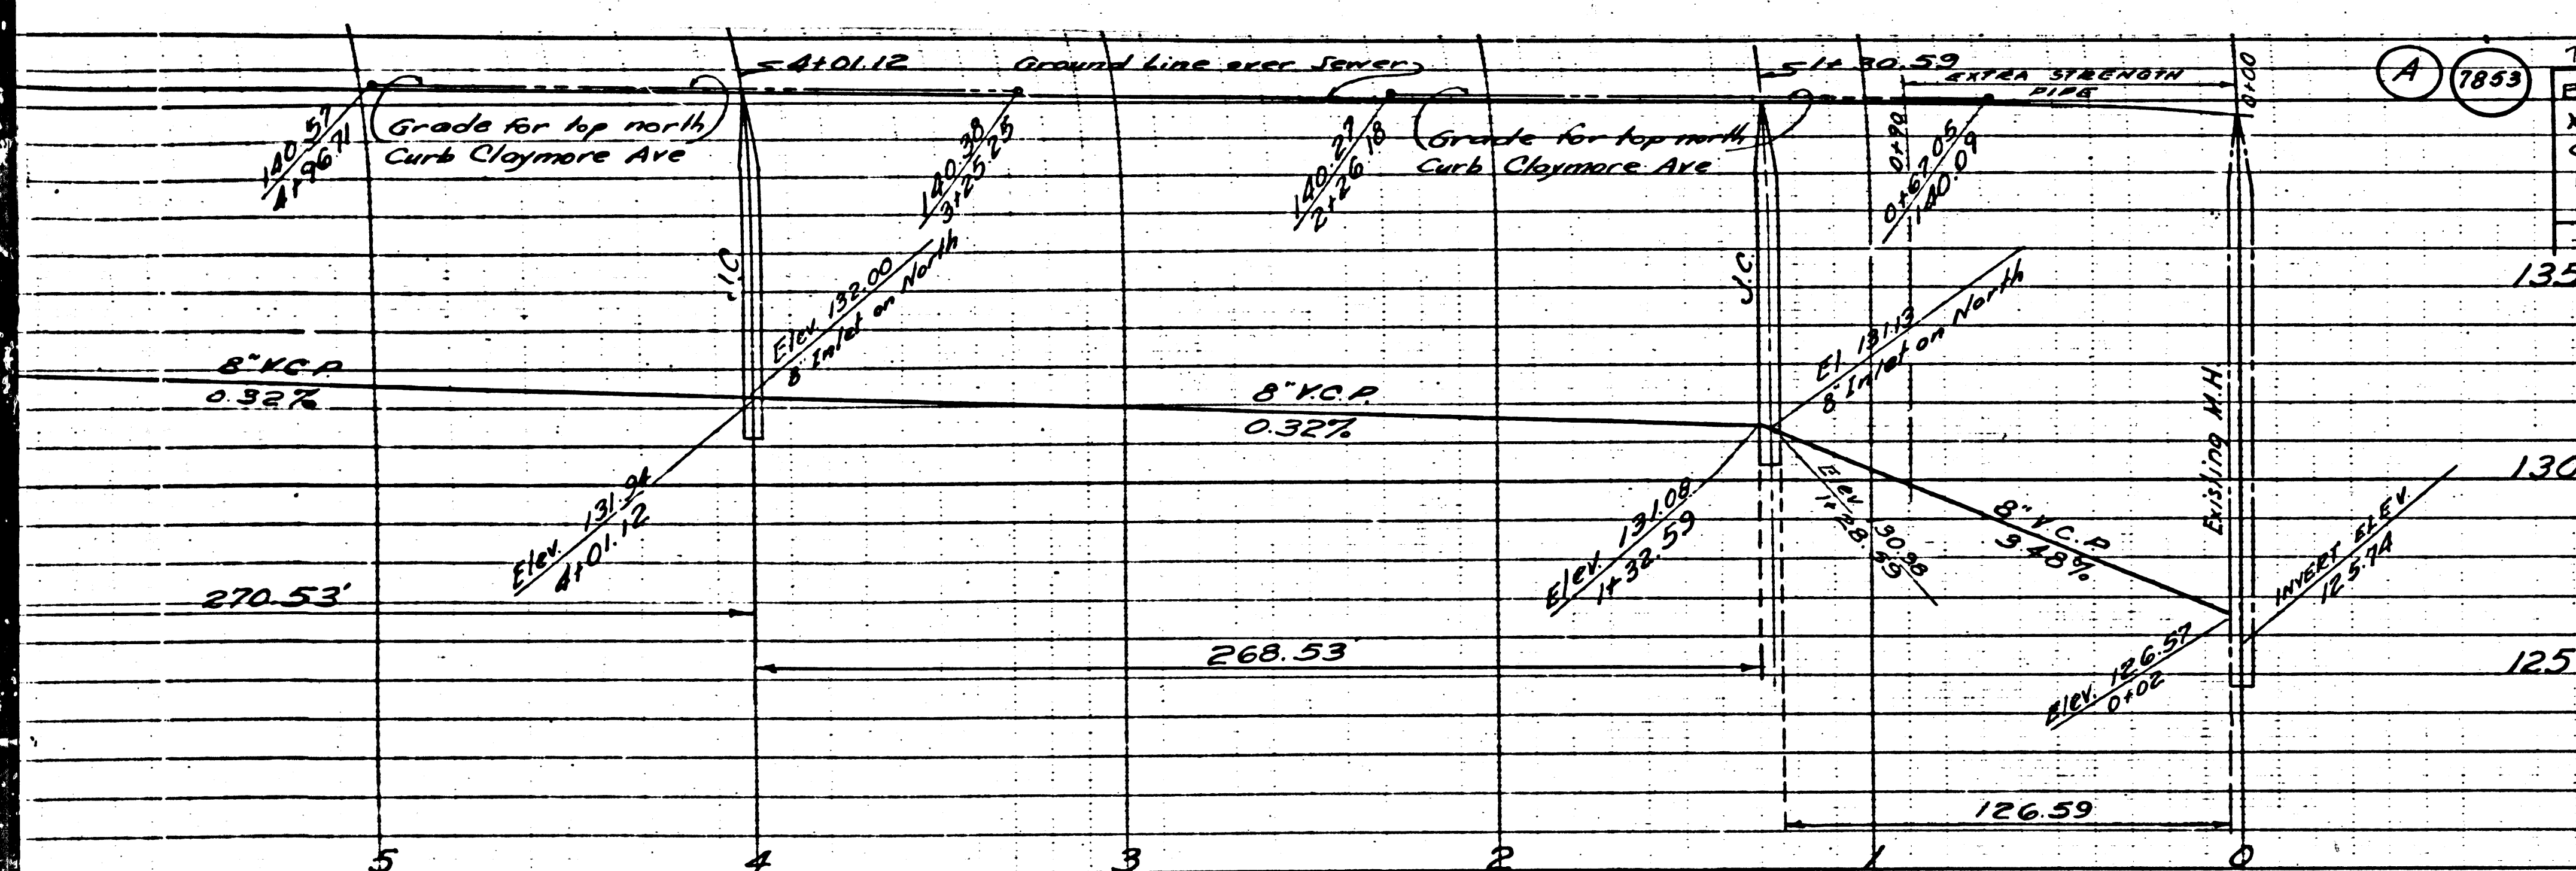 4+01.12
Ground Line over Sewer
1+30.59
EXTRA STRENGTH
PIPE
0+00
A
7853
140.57
4+96.71
Grade for top north
Curb Claymore Ave
140.38
3+25.25
140.27
2+26.18
Grade for top north
Curb Claymore Ave
0+90
0+67.05
140.09
J.C.
Elev. 132.00
8" Inlet on North
J.C.
El. 131.13
8" Inlet on North
135
8" V.C.P.
0.32%
8" V.C.P.
0.32%
Existing M.H.
130
Elev. 131.94
4+01.12
Elev. 131.08
1+32.59
Elev. 130.98
1+28.59
8" V.C.P.
3.48%
INVERT ELEV.
125.74
270.53'
268.53
Elev. 126.57
0+02
125
126.59
5
4
3
2
1
0